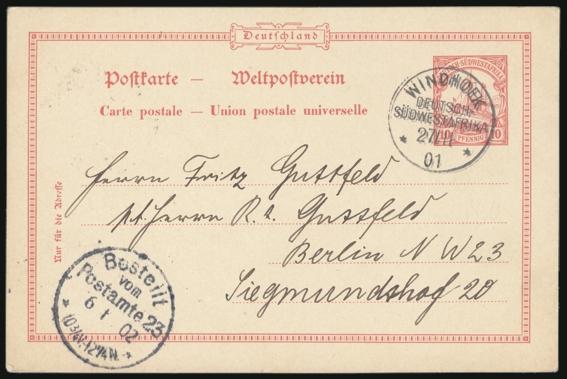 Deutschland
Postkarte — Weltpostverein
Carte postale — Union postale universelle
10
PFENNIG
WINDHOEK
DEUTSCH-
SÜDWESTAFRIKA
01
Nur für die Adresse
Herrn Fritz Gussfeld
Herrn R. Gussfeld
Berlin N W 23
Siegmundshof 20
Bestellt
vom
Postamte 23
6 1 02